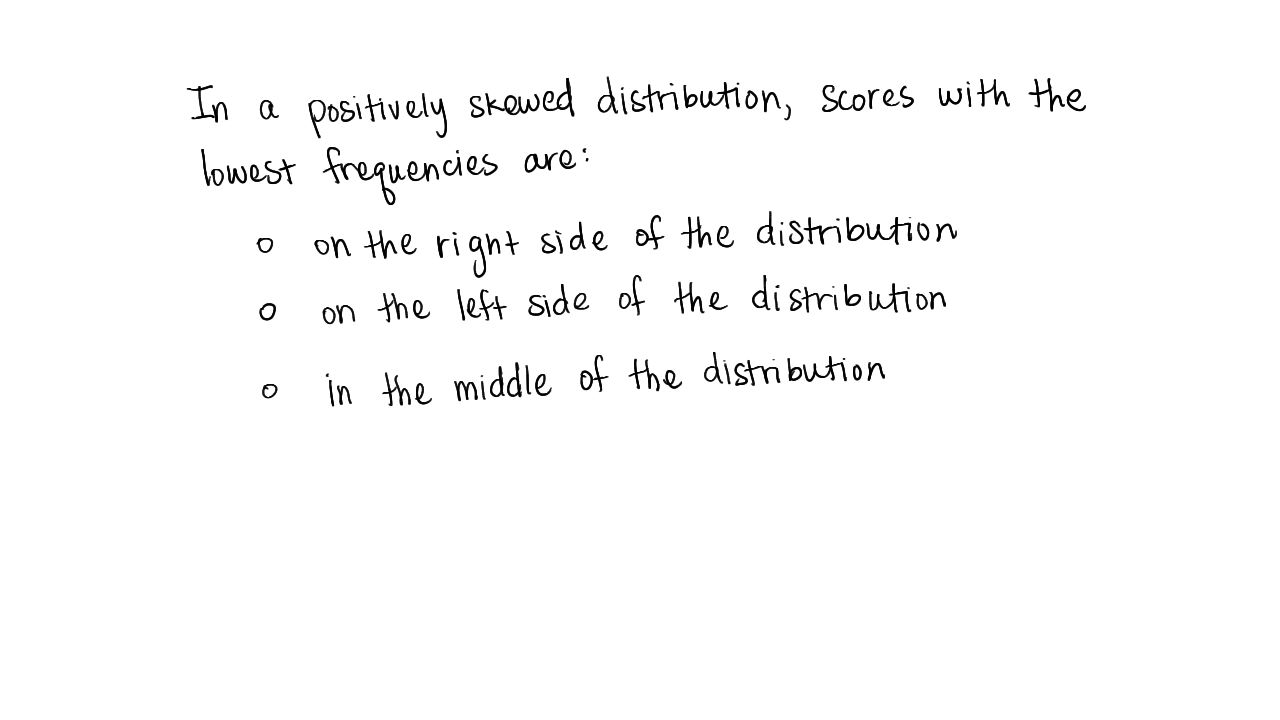 In a positively skewed distribution, scores with the
lowest frequencies are:
o on the right side of the distribution
o on the left side of the distribution
o in the middle of the distribution